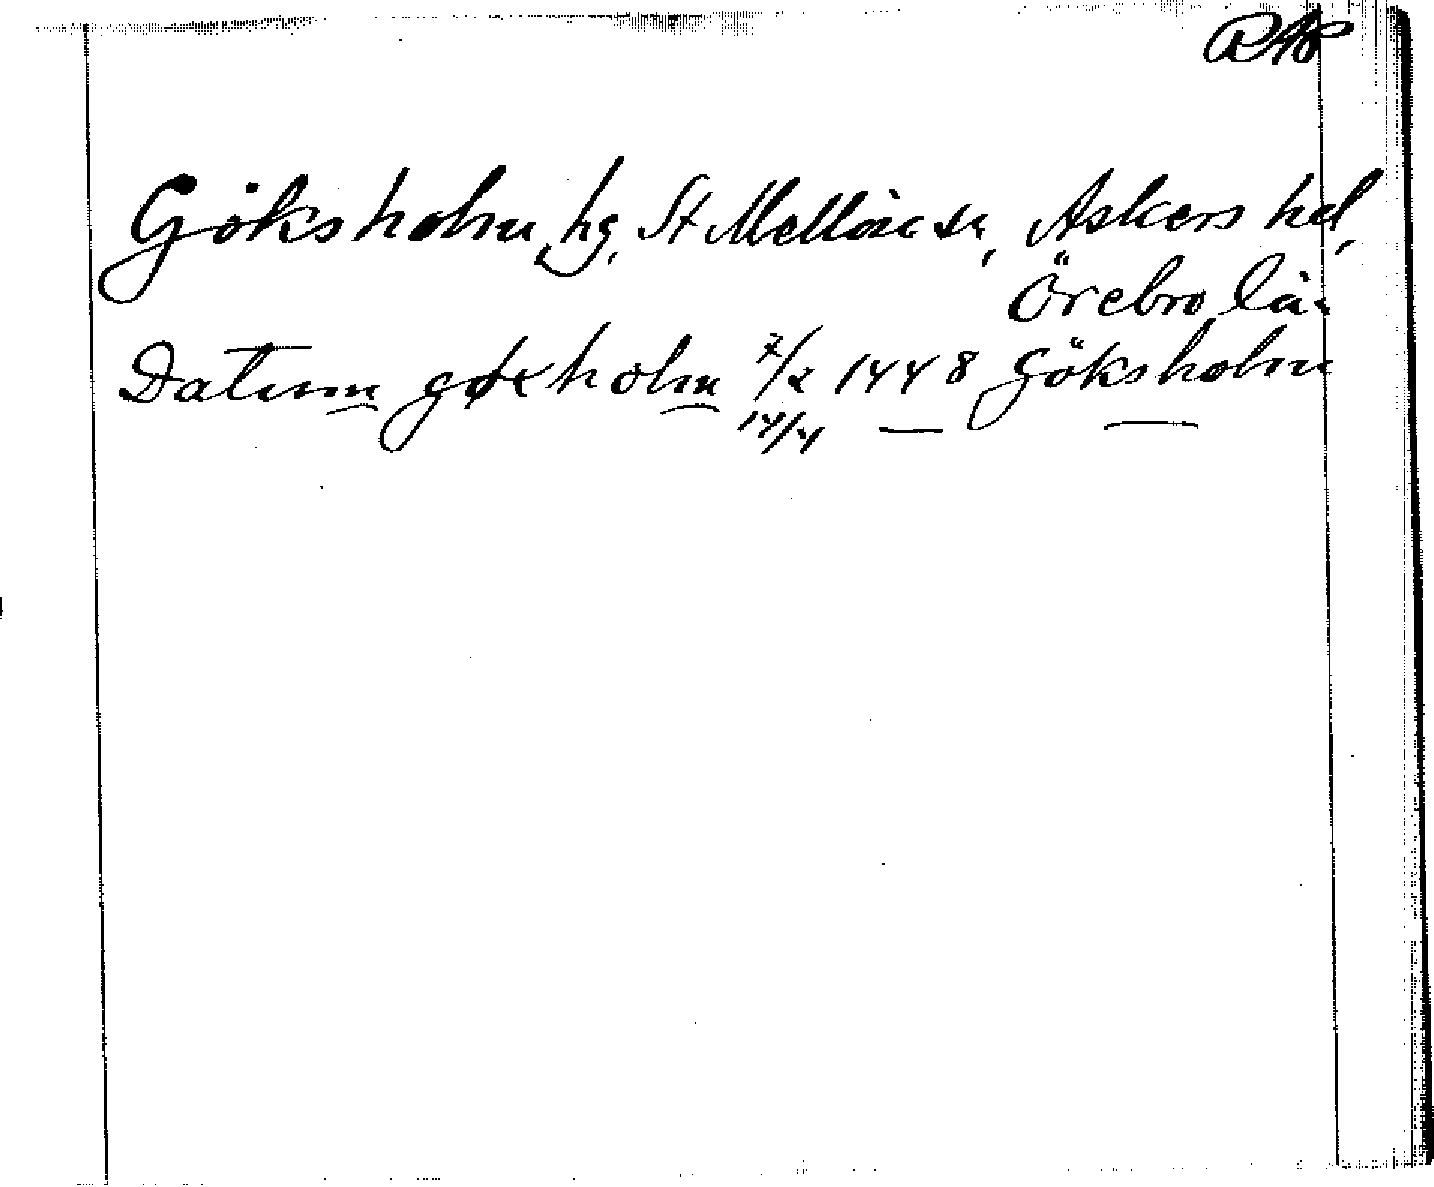 RAp
Göksholm, hg, St Mellösa sn, Askers hd,
Örebro län
Datum gøxholm 7/2 1448 Göksholm
14/4 —